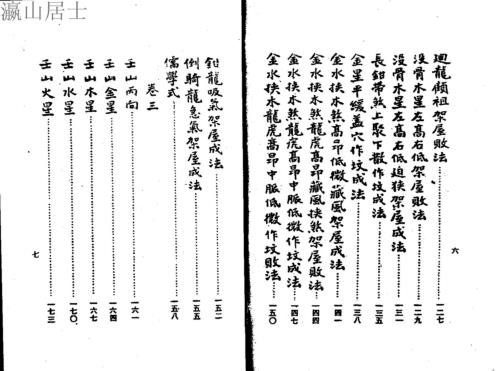 瀛山居士
迴龍顧祖架屋敗法 一二七
沒骨水星左高右低架屋敗法 一二九
沒骨水星左高右低迫狹架屋成法 一三一
長鉗帶煞上聚下散作坟成法 一三五
金星平緩蓋穴作坟成法 一三八
金水挾木煞高昂低微藏風架屋成法 一四一
金水挾木煞龍虎高昂藏風挾煞架屋敗法 一四四
金水挾木龍虎高昂中脈低微作坟成法 一四七
金水挾木龍虎高昂中脈低微作坟敗法 一五〇
六
鉗龍吸氣架屋成法 一五二
倒騎龍急氣架屋成法 一五五
儒學式 一五八
卷三
壬山丙向 一六一
壬山金星 一六四
壬山木星 一六七
壬山水星 一七〇
壬山火星 一七三
七